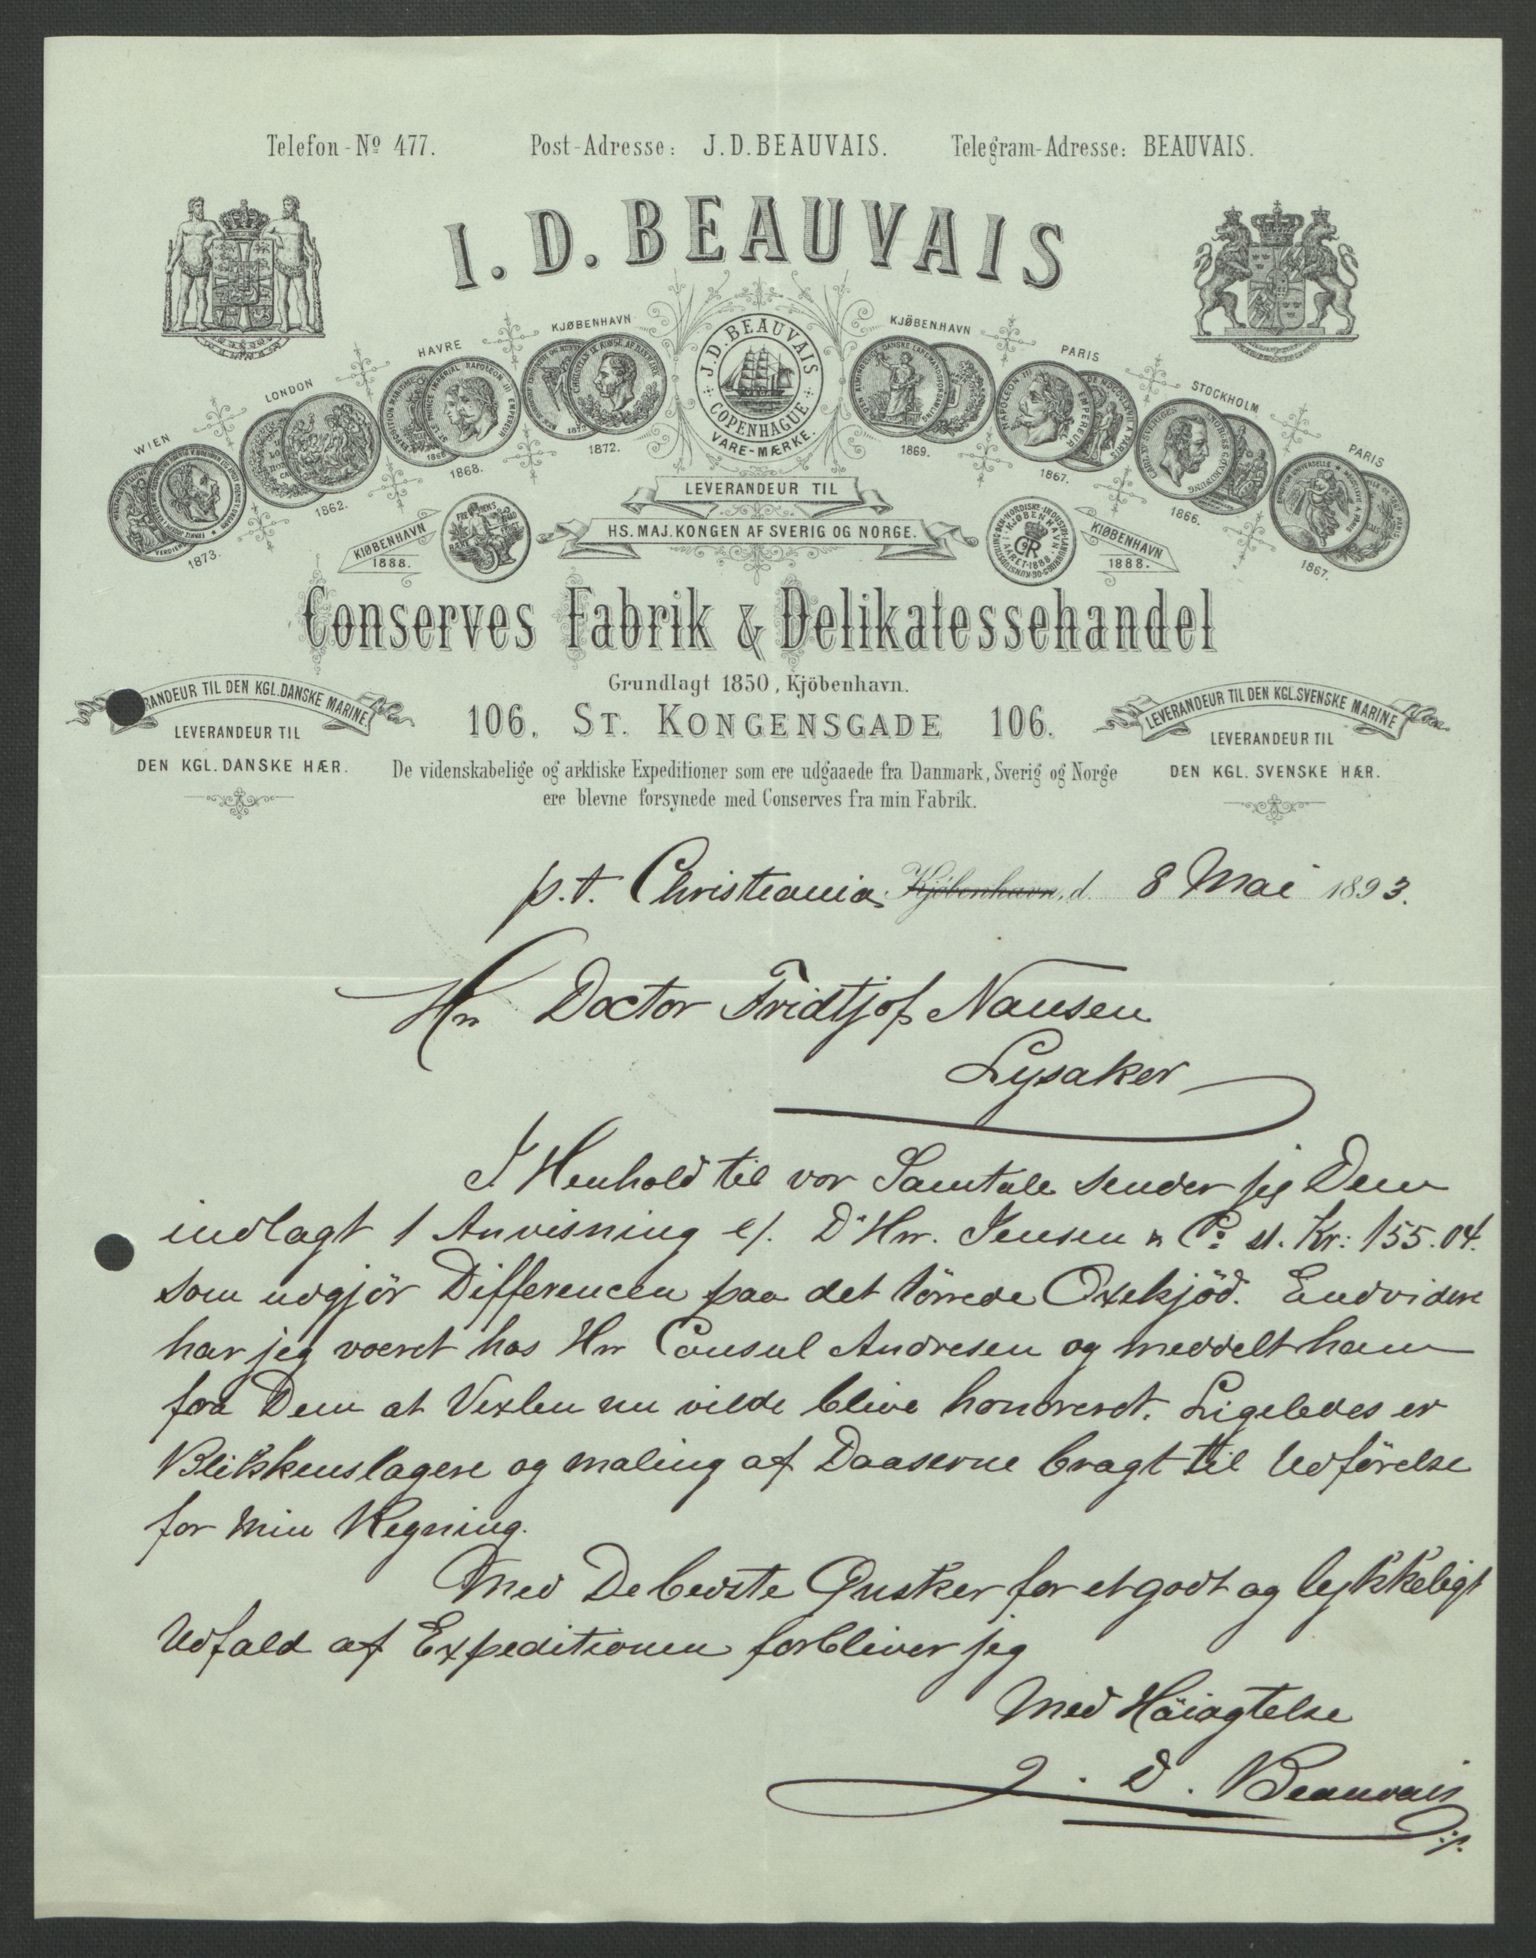 Telefon - Nº 477. Post-Adresse: J.D. BEAUVAIS. Telegram-Adresse: BEAUVAIS.
I. D. BEAUVAIS
WIEN
LONDON
HAVRE
KJØBENHAVN
KJØBENHAVN
PARIS
STOCKHOLM
PARIS
J. D. BEAUVAIS
COPENHAGUE
VARE-MÆRKE.
1873.
1862.
1868.
1872.
1869.
1867.
1866.
1867.
LEVERANDEUR TIL
HS. MAJ. KONGEN AF SVERIG OG NORGE.
KIØBENHAVN
1888.
KIØBENHAVN
1888.
Conserves Fabrik & Delikatessehandel
Grundlagt 1850, Kjöbenhavn.
106. ST. KONGENSGADE 106.
RANDEUR TIL DEN KGL. DANSKE MARINE.
LEVERANDEUR TIL
DEN KGL. DANSKE HÆR.
LEVERANDEUR TIL DEN KGL. SVENSKE MARINE
LEVERANDEUR TIL
DEN KGL. SVENSKE HÆR.
De videnskabelige og arktiske Expeditioner som ere udgaaede fra Danmark, Sverig og Norge
ere blevne forsynede med Conserves fra min Fabrik.
p.t. Christiania Kjöbenhavn, d. 8 Mai 1893.
Hr Doctor Fridtjof Nansen
Lysaker
I Henhold til vor Samtale sender jeg Dem
indlagt 1 Anvisning p/. D'Hrr. Jensen & Co st. Kr: 155.04.
som udgjör Differencen paa det törrede Oxekjöd. Endvidere
har jeg voeret hos Hrr Consul Andresen og meddelt ham
fra Dem at Vexlen nu vilde blive honoreret. Ligeledes er
Blikkenslagere og maling af Daaserne bragt til Udförelse
for min Regning.
Med De bedste Ønsker for et godt og lykkeligt
Udfald af Expeditionen forbliver jeg
Med Höiagtelse
J. D. Beauvais